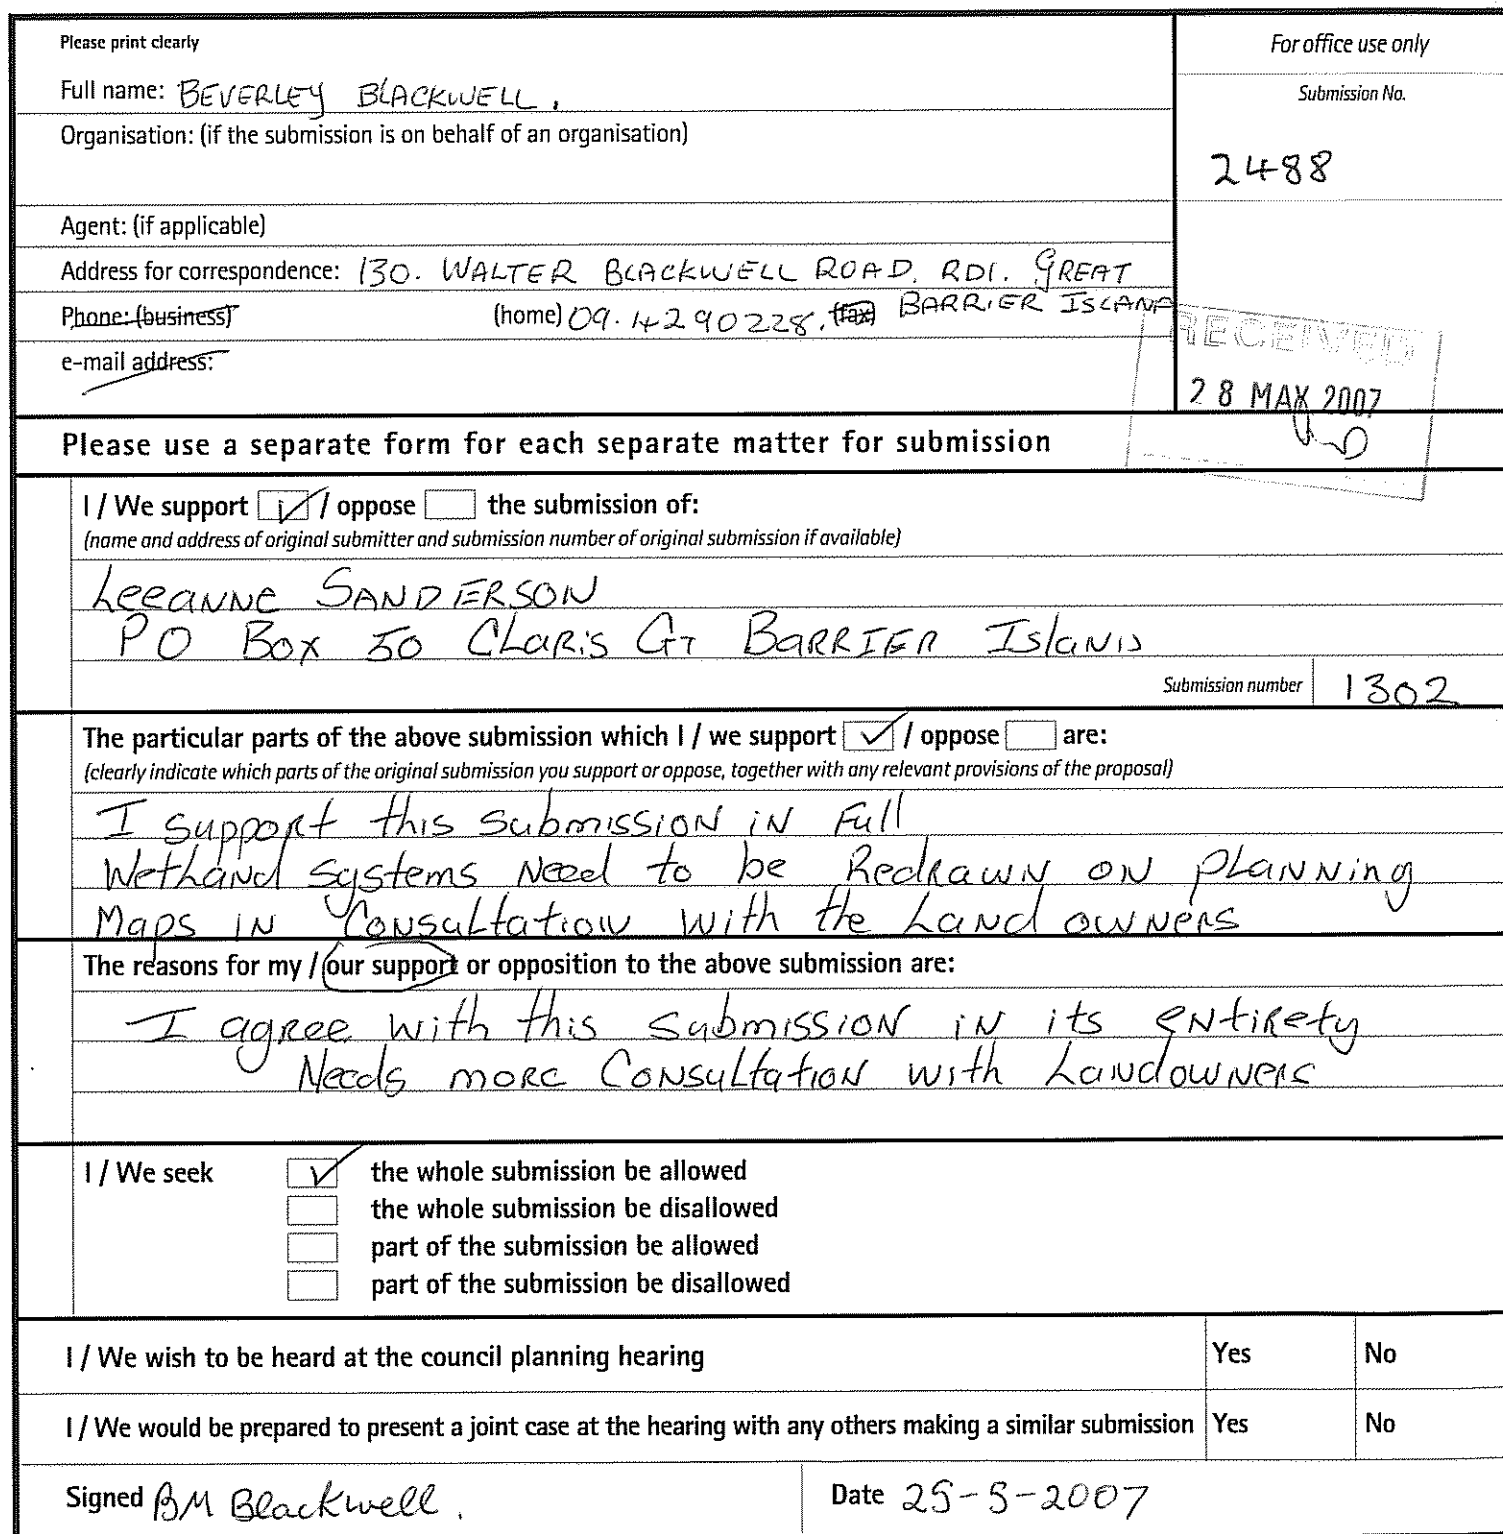 Please print clearly
For office use only
Full name: BEVERLEY BLACKWELL.
Submission No.
Organisation: (if the submission is on behalf of an organisation)
2488
Agent: (if applicable)
Address for correspondence: 130. WALTER BLACKWELL ROAD. RD1. GREAT
Phone: (business) (home) 09.4290228. (fax) BARRIER ISLAND
e-mail address:
RECEIVED
28 MAY 2007
Please use a separate form for each separate matter for submission
I / We support ✓ / oppose the submission of:
(name and address of original submitter and submission number of original submission if available)
Leeanne SANDERSON
PO Box 50 Claris GT BARRIER Island
Submission number 1302
The particular parts of the above submission which I / we support ✓ / oppose are:
(clearly indicate which parts of the original submission you support or oppose, together with any relevant provisions of the proposal)
I support this submission in Full
Wethand systems Need to be Redrawn on planning
Maps in Consultation with the Land owners
The reasons for my / our support or opposition to the above submission are:
I agree with this submission in its entirety
Needs more Consultation with Landowners
I / We seek ✓ the whole submission be allowed
the whole submission be disallowed
part of the submission be allowed
part of the submission be disallowed
I / We wish to be heard at the council planning hearing Yes No
I / We would be prepared to present a joint case at the hearing with any others making a similar submission Yes No
Signed BM Blackwell. Date 25-5-2007